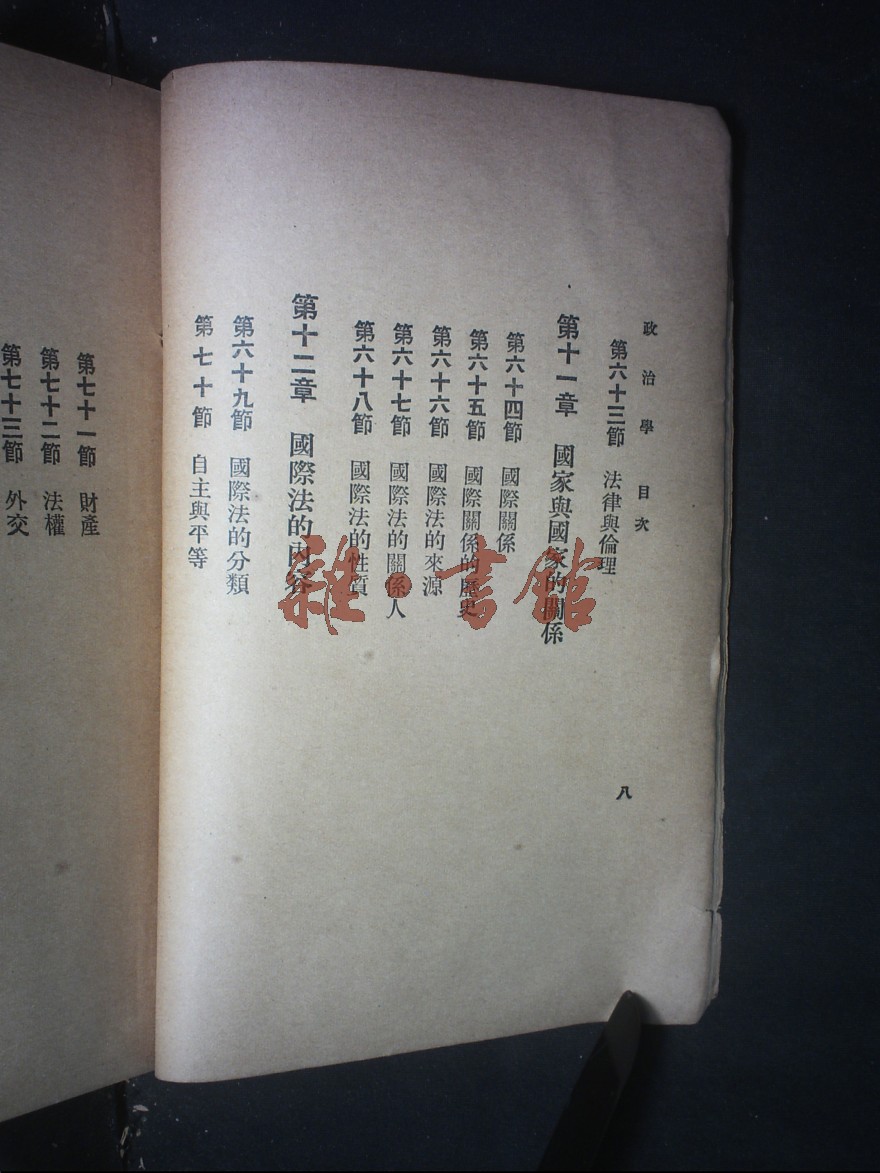 政治學 目次
八
第六十三節 法律與倫理
第十一章 國家與國家的關係
第六十四節 國際關係
第六十五節 國際關係的歷史
第六十六節 國際法的來源
第六十七節 國際法的關係人
第六十八節 國際法的性質
第十二章 國際法的內容
第六十九節 國際法的分類
第七十節 自主與平等
第七十一節 財產
第七十二節 法權
第七十三節 外交
雜·書館